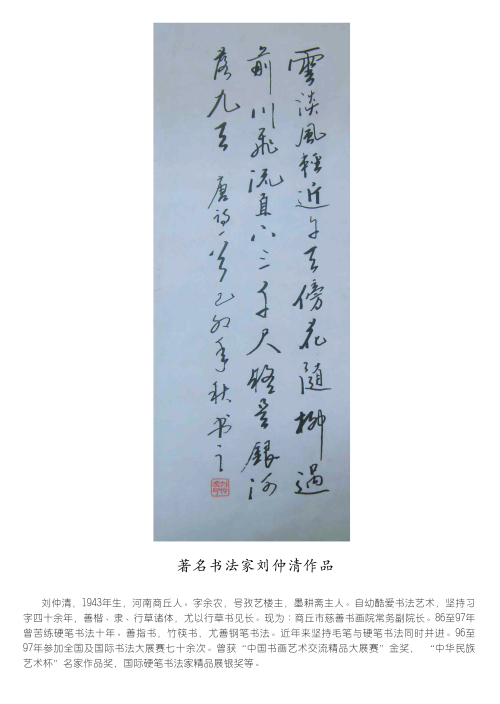 雲淡風輕近午天傍花隨柳過
前川飛流直下三千尺疑是銀河
落九天 唐詩一首 年秋书之
著名书法家刘仲清作品
刘仲清，1943年生，河南商丘人。字余农，号孜艺楼主，墨耕斋主人。自幼酷爱书法艺术，坚持习
字四十余年，善楷、隶、行草诸体，尤以行草书见长。现为：商丘市慈善书画院常务副院长。86至97年
曾苦练硬笔书法十年。善指书，竹筷书，尤善钢笔书法。近年来坚持毛笔与硬笔书法同时并进。96至
97年参加全国及国际书法大展赛七十余次。曾获“中国书画艺术交流精品大展赛”金奖， “中华民族
艺术杯”名家作品奖，国际硬笔书法家精品展银奖等。